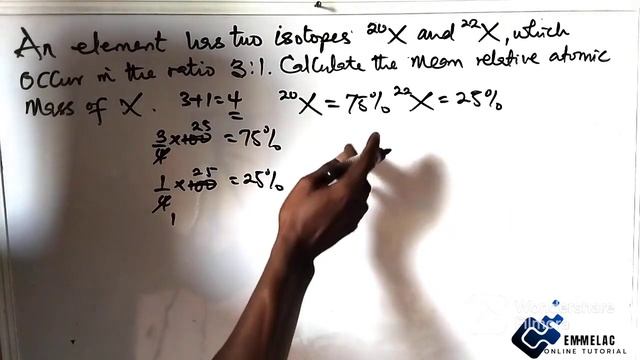 An element has two isotopes ²⁰X and ²²X, which
occur in the ratio 3:1. Calculate the mean relative atomic
mass of X. 3+1=4 ²⁰X = 75% ²²X = 25%
3/4 × 100 25 = 75%
1/4 × 100 25 = 25%
1
Wondershare
Filmora
EMMELAC
ONLINE TUTORIAL